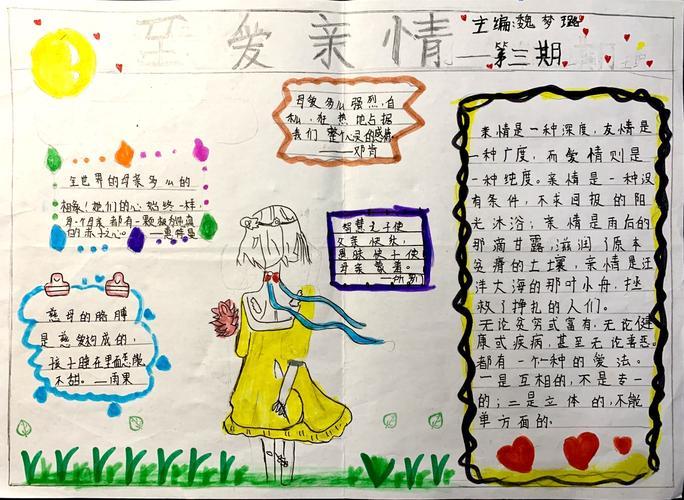 至爱亲情
主编:魏梦璐
——第三期
母爱多么强烈,自
私、狂热地占据
我们整个心灵的感情。
——邓肯
全世界的母亲多么的
相象!她们的心始终一样,
每个母亲都有一颗极为纯真
的赤子之心。
智慧之子使
父亲快乐,
愚昧使子使
母亲蒙羞。
慈母的胳膊
是慈爱构成的,
孩子睡在里面怎能
不甜。——雨果
亲情是一种深度,友情是
一种广度,而爱情则是
一种纯度。亲情是一种没
有条件,不求回报的阳
光沐浴;亲情是雨后的
那滴甘露,滋润了原本
贫瘠的土壤,亲情是汪
洋大海的那叶小舟,拯
救了挣扎的人们。
无论贫穷或富有,无论健
康或疾病,甚至无论善恶。
都有一个一种的爱法。
一是互相的,不是专一
的;二是立体的,不能
单方面的。